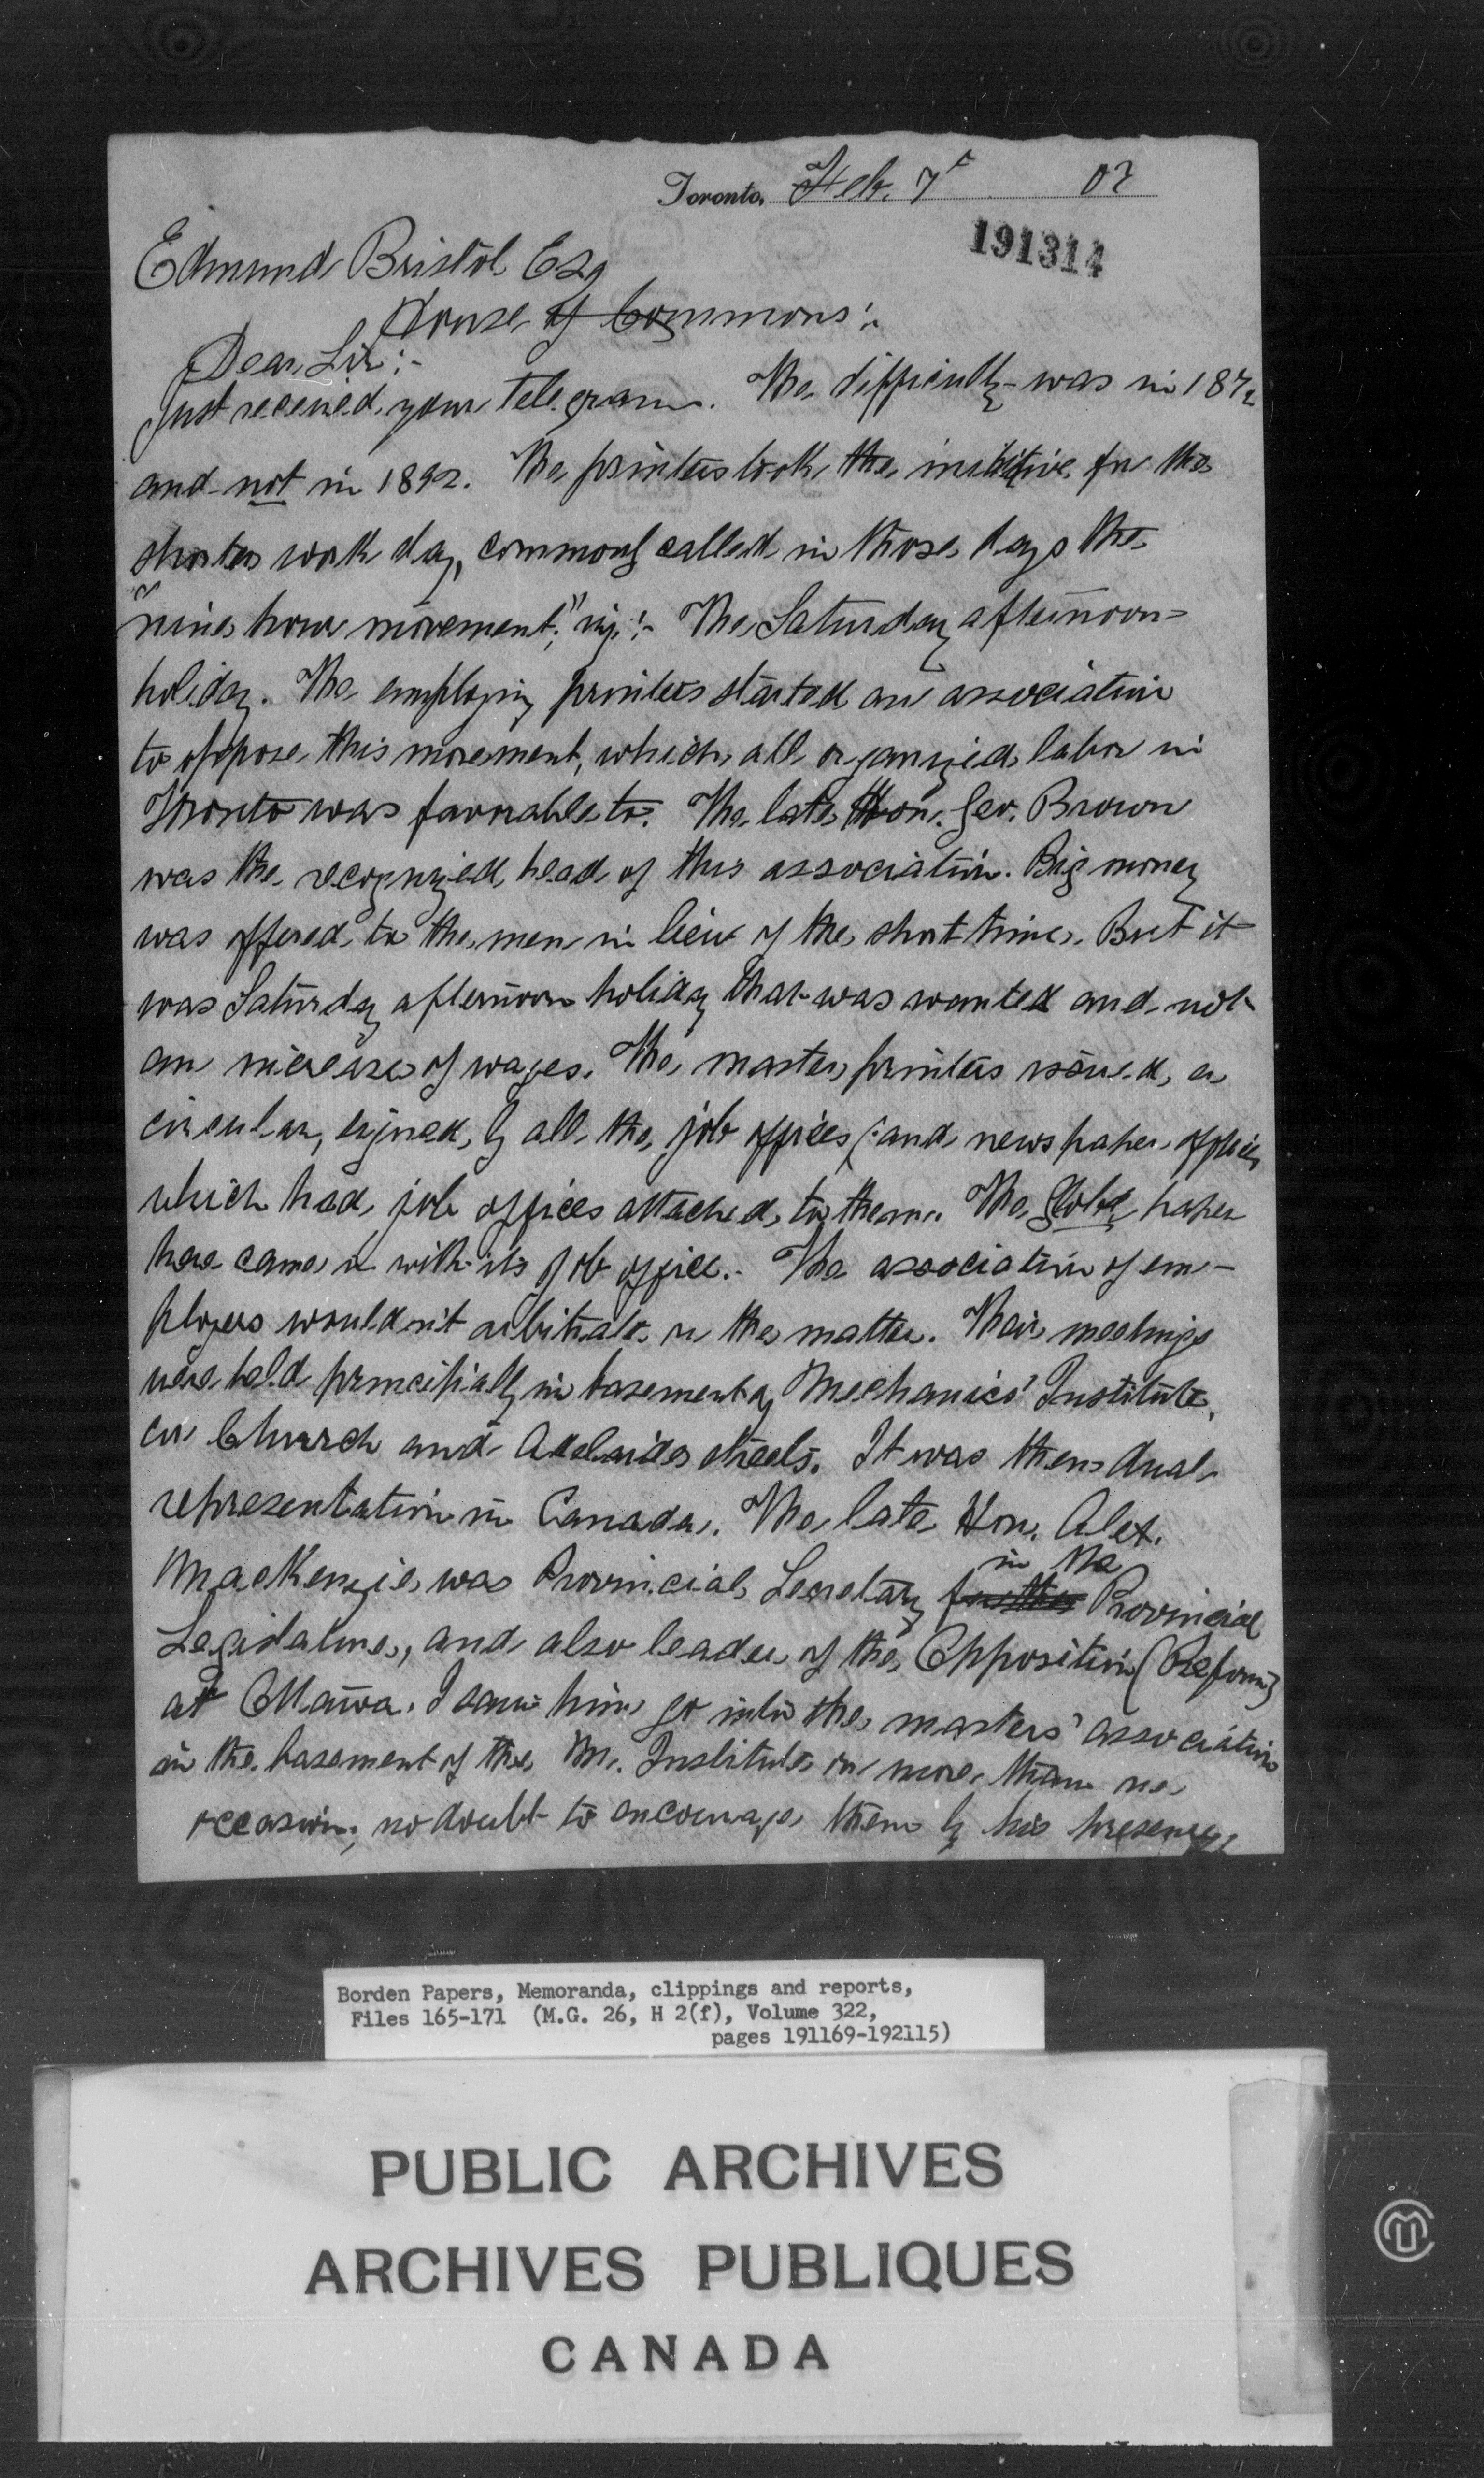 Toronto, Feb. 7th 07
191314
Edmund Bristol Esq
House of Commons:-
Dear Sir:-
Just received your telegram. The difficulty was in 1872
and not in 1892. The printers took the initiative for the
shorter work day, commonly called in those days the
"nine hour movement," viz:- The Saturday afternoon-
holiday. The employing printers started an association
to oppose this movement, which all organized labor in
Toronto was favorable to. The late Hon. Geo. Brown
was the recognized head of this association. Big money
was offered to the men in lieu of the short time. But it
was Saturday afternoon holiday that was wanted and not
an increase of wages. The master printers issued a
circular, signed by all the job offices (and newspaper offices
which had job offices attached to them. The Globe paper
here came in with its job office.- The association of em-
ployers wouldn't arbitrate on the matter. Their meetings
were held principally in basement of Mechanics' Institute,
cor Church and Adelaide streets. It was then dual
representation in Canada. The late Hon. Alex.
MacKenzie was Provincial Secretary in the Provincial
Legislature, and also leader of the Opposition (Reform)
at Ottawa. I saw him go into the masters' association
in the basement of the M. Institute on more than one
occasion, no doubt to encourage them by his presence,
Borden Papers, Memoranda, clippings and reports,
Files 165-171 (M.G. 26, H 2(f), Volume 322,
pages 191169-192115)
PUBLIC ARCHIVES
ARCHIVES PUBLIQUES
CANADA